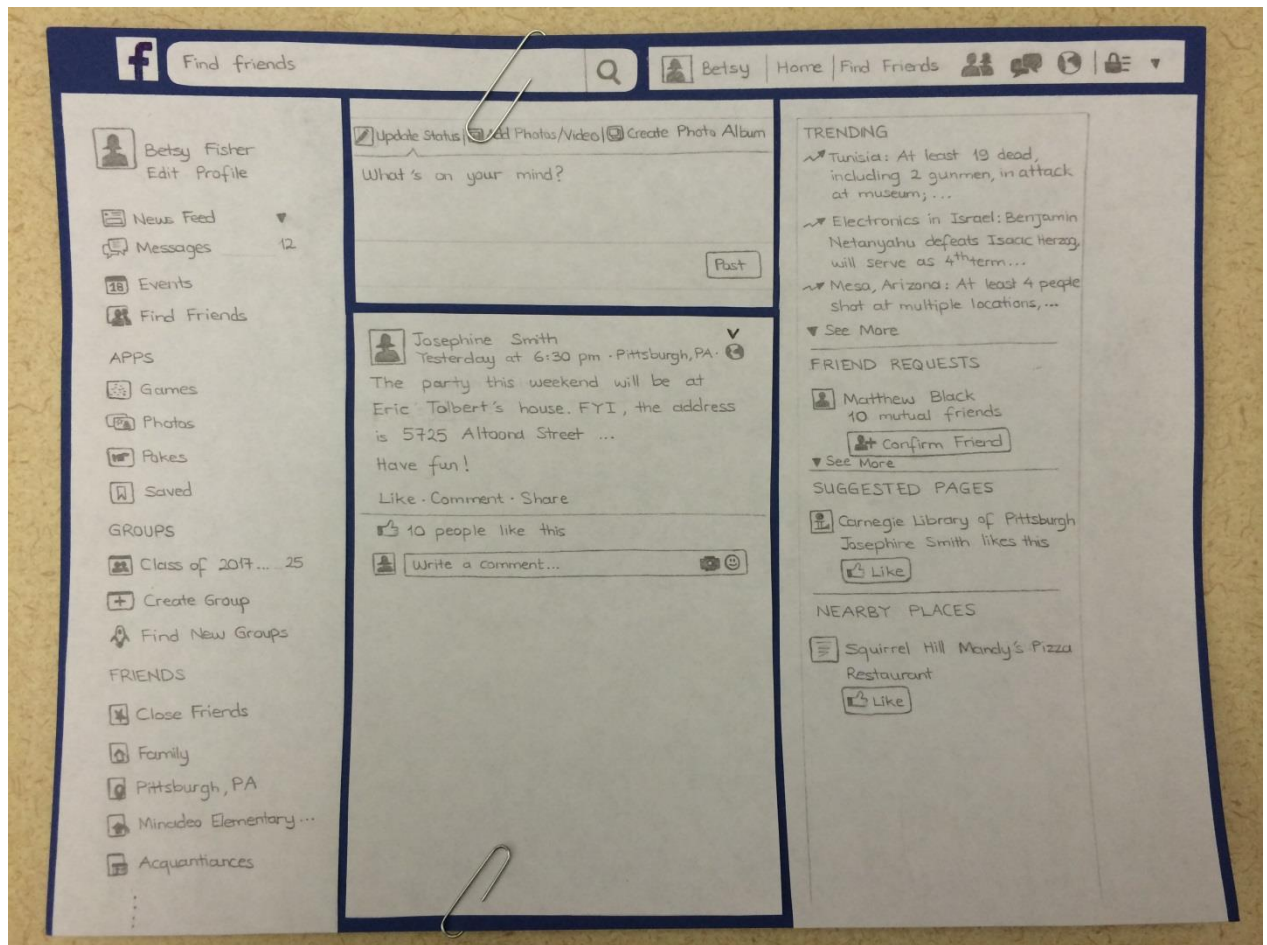 f
Find friends
Betsy | Home | Find Friends
Betsy Fisher
Edit Profile
News Feed
Messages 12
18 Events
Find Friends
APPS
Games
Photos
Pokes
Saved
GROUPS
Class of 2017... 25
Create Group
Find New Groups
FRIENDS
Close Friends
Family
Pittsburgh, PA
Minadeo Elementary...
Acquantiances
Update Status | Add Photos/Video | Create Photo Album
What's on your mind?
Post
Josephine Smith
Yesterday at 6:30 pm · Pittsburgh, PA ·
The party this weekend will be at
Eric Tolbert's house. FYI, the address
is 5725 Altoona Street ...
Have fun!
Like · Comment · Share
10 people like this
Write a comment...
TRENDING
Tunisia: At least 19 dead,
including 2 gunmen, in attack
at museum; ...
Electronics in Israel: Benjamin
Netanyahu defeats Isaac Herzog,
will serve as 4th term...
Mesa, Arizona: At least 4 people
shot at multiple locations, ...
See More
FRIEND REQUESTS
Matthew Black
10 mutual friends
Confirm Friend
See More
SUGGESTED PAGES
Carnegie Library of Pittsburgh
Josephine Smith likes this
Like
NEARBY PLACES
Squirrel Hill Mandy's Pizza
Restaurant
Like